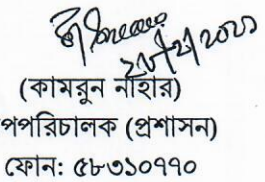 ২০২১
(কামরুন নাহার)
পপরিচালক (প্রশাসন)
ফোন: ৫৮৩১০৭৭০